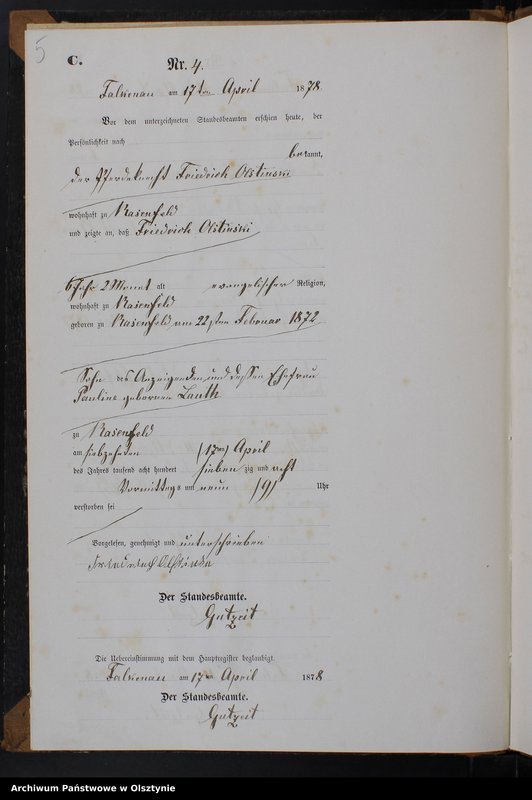 5
C.
Nr. 4.
Falkenau am 17ten April 1878.
Vor dem unterzeichneten Standesbeamten erschien heute, der
Persönlichkeit nach
bekannt,
der Pferdeknecht Friedrich Olstinski
wohnhaft zu Rasenfeld
und zeigte an, daß Friedrich Olstinski
6 Jahr 2 Monat alt evangelischer Religion,
wohnhaft zu Rasenfeld
geboren zu Rasenfeld am 22sten Februar 1872
Sohn des Anzeigenden und dessen Ehefrau
Pauline geborenen Lauth
zu Rasenfeld
am siebzehnten (17ten) April
des Jahres tausend acht hundert sieben zig und acht
Vormittags um neun (9) Uhr
verstorben sei
Vorgelesen, genehmigt und unterschrieben
Der Standesbeamte.
Gutzeit
Die Uebereinstimmung mit dem Hauptregister beglaubigt.
Falkenau am 17ten April 1878
Der Standesbeamte.
Gutzeit
Archiwum Państwowe w Olsztynie